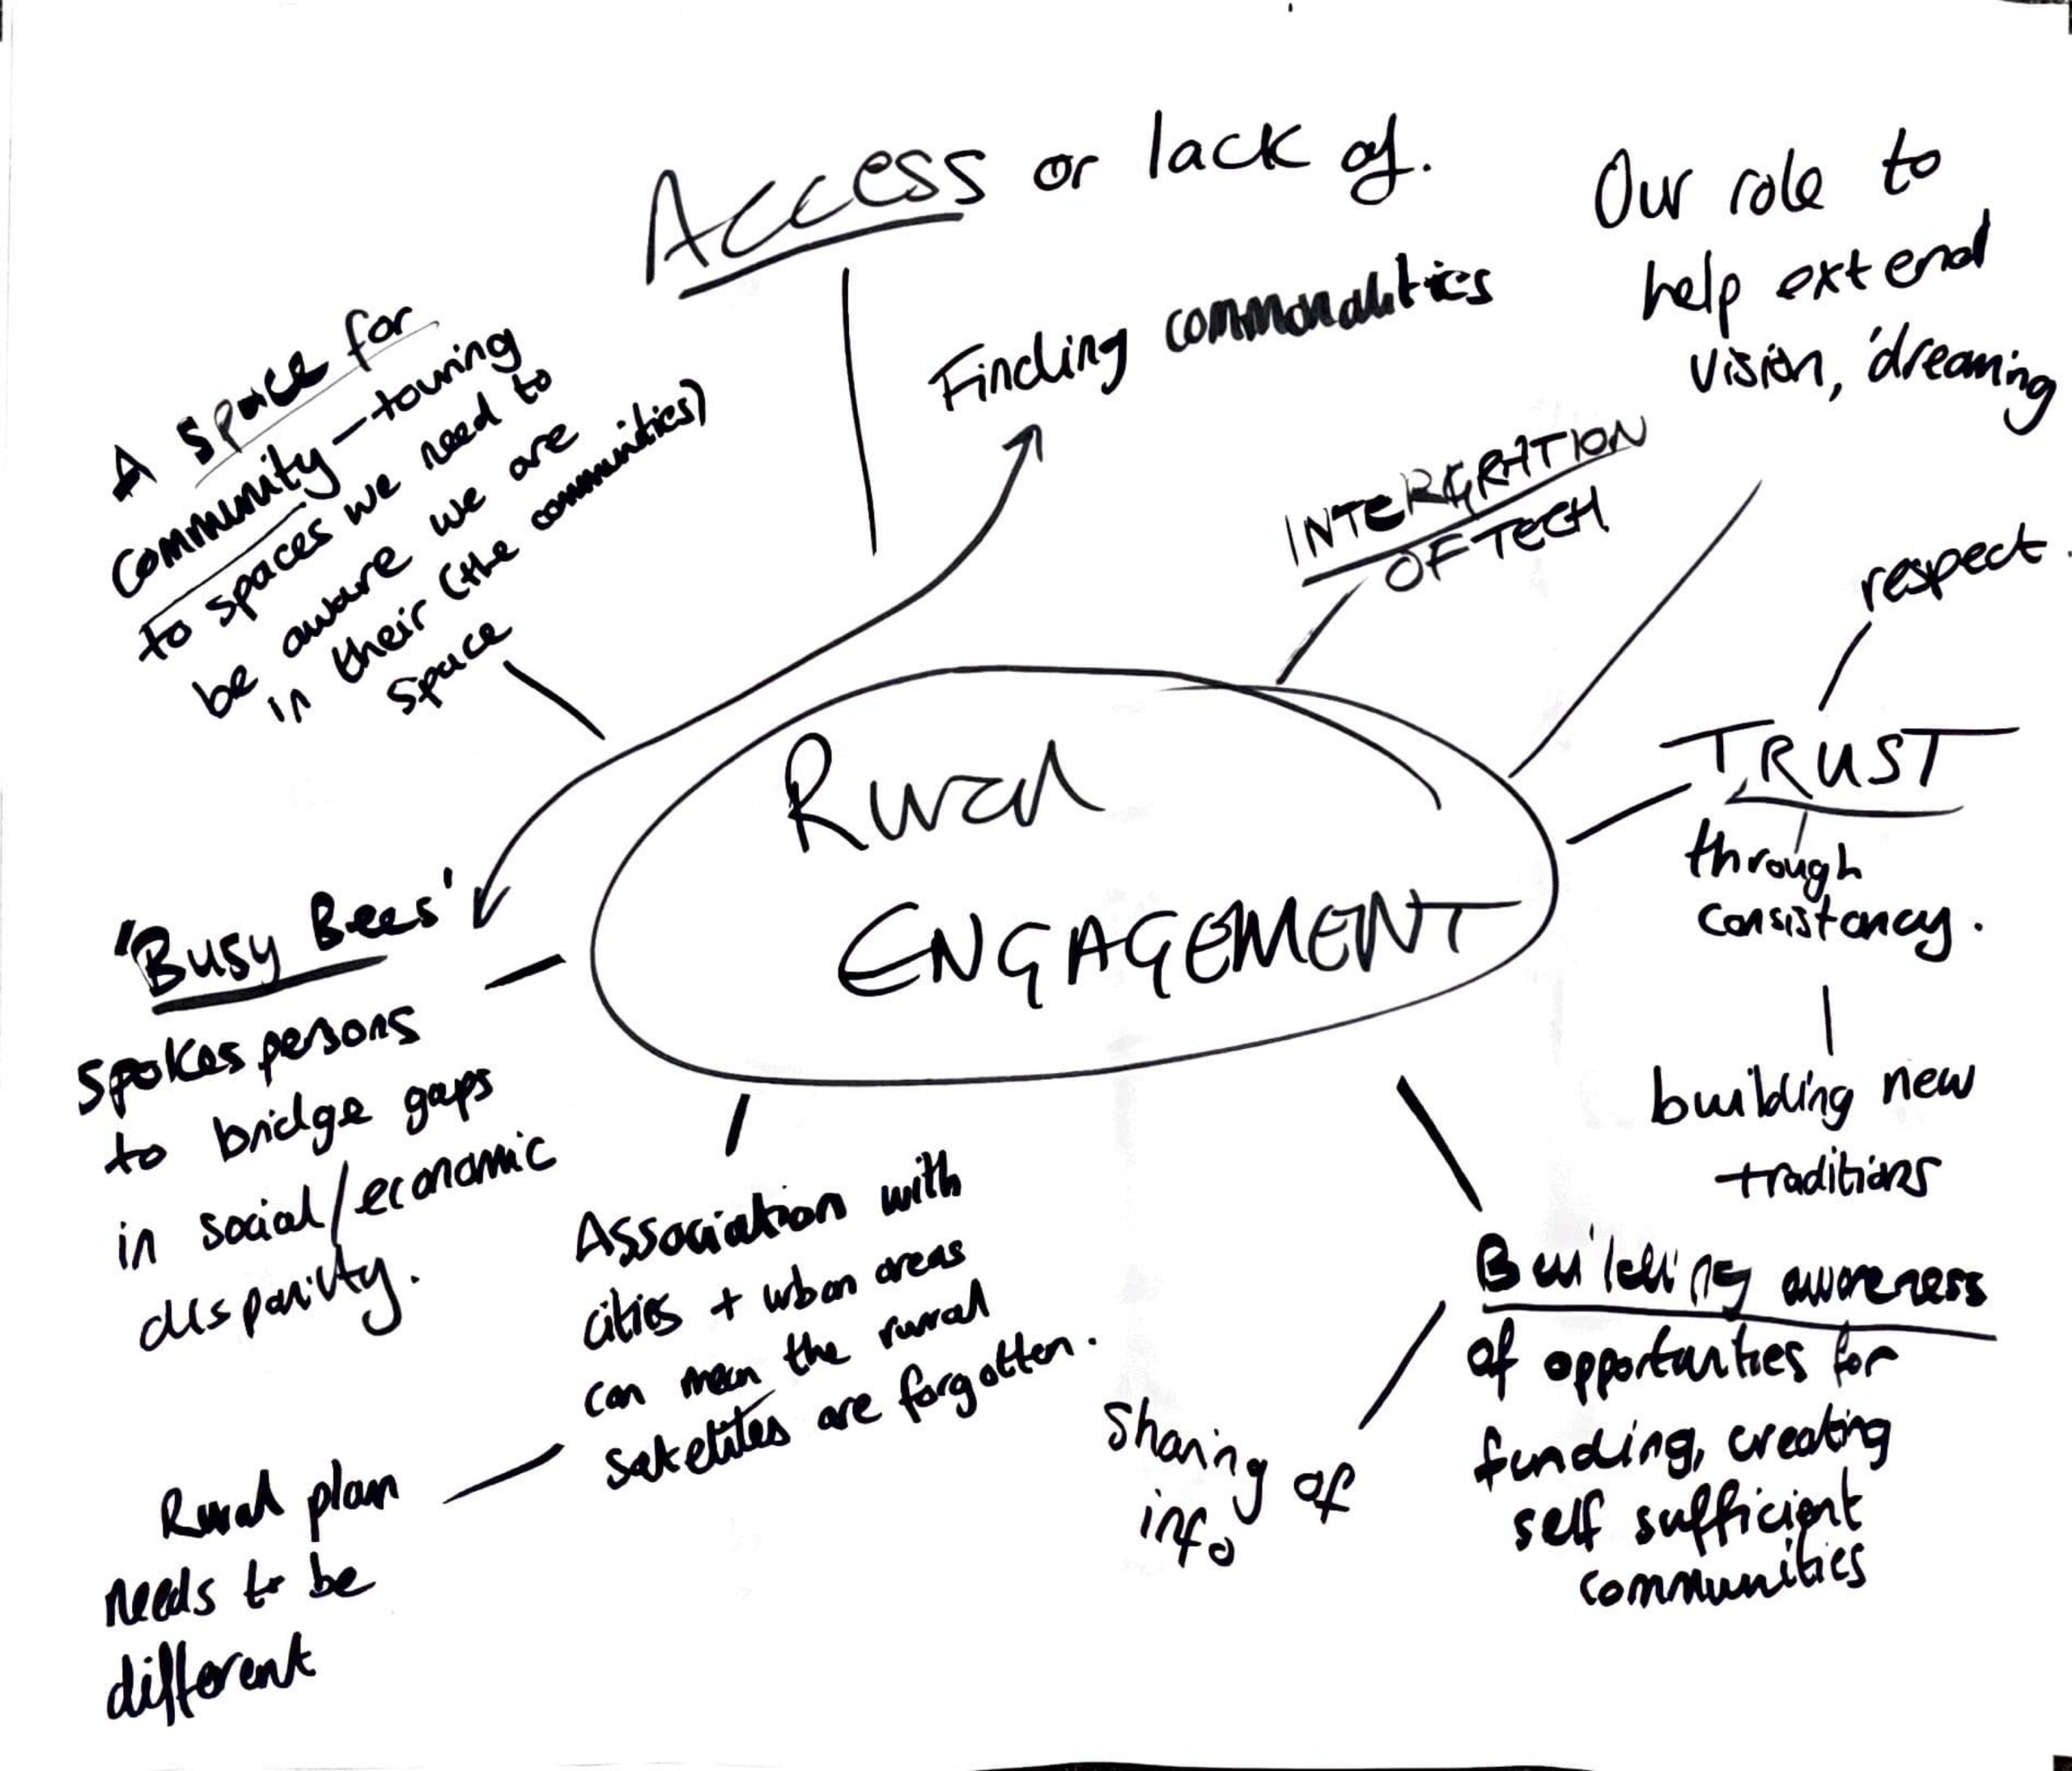 Access or lack of.
Finding commonalities
Our role to
help extend
vision, 'dreaming
A space for
community - touring
to spaces we need to
be aware we are
in their (the communities)
space
INTERGRATION
OF TECH
respect.
TRUST
through
consistancy.
building new
traditions
Rural
ENGAGEMENT
'Busy Bees'
spokes persons
to bridge gaps
in social/economic
disparity.
Association with
cities + urban areas
can mean the rural
satelites are forgotten.
Rural plan
needs to be
different
Building awareness
of opportunities for
funding, creating
self sufficient
communities
Sharing of
info